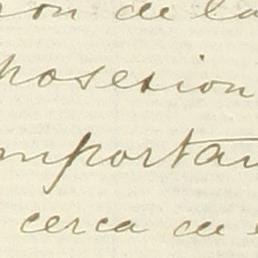 on de la
posesion
importan
cerca de